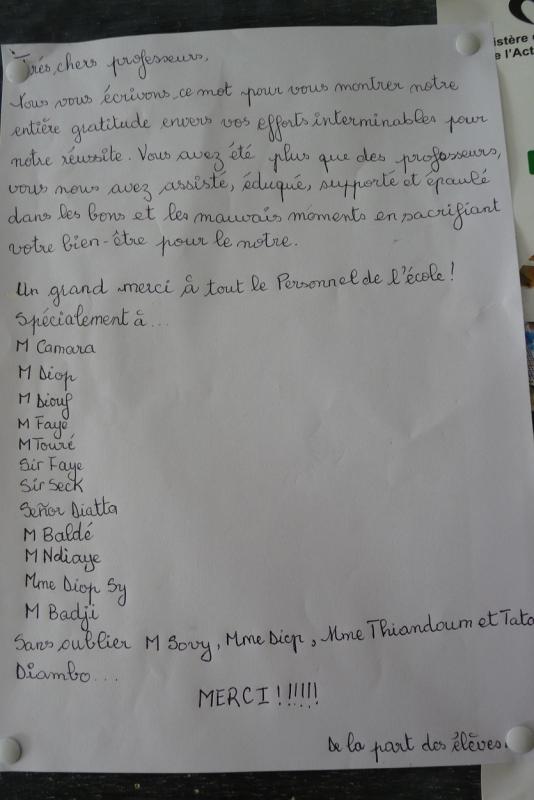 Très chers professeurs,
Nous vous écrivons ce mot pour vous montrer notre
entière gratitude envers vos efforts interminables pour
notre réussite. Vous avez été plus que des professeurs,
vous nous avez assisté, éduqué, supporté et épaulé
dans les bons et les mauvais moments en sacrifiant
votre bien-être pour le notre.
Un grand merci à tout le Personnel de l'école !
Spécialement à...
M Camara
M Diop
M Diouf
M Faye
M Touré
Sir Faye
Sir Seck
Señor Diatta
M Baldé
M Ndiaye
Mme Diop Sy
M Badji
Sans oublier M Sovy, Mme Diop, Mme Thiandoum et Tata
Diambo...
MERCI !!!!!!
De la part des élèves.
istère
e l'Act